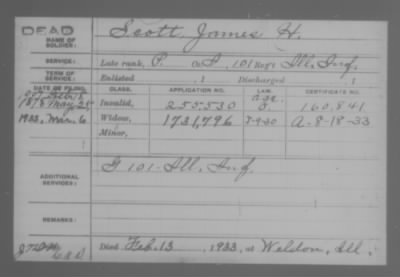 DEAD
NAME OF SOLDIER: Scott, James H.
SERVICE: Late rank, P. Co. , 101 Reg't Ill. Inf.
TERM OF SERVICE: Enlisted , 1 Discharged , 1
DATE OF FILING. CLASS. APPLICATION NO. LAW. CERTIFICATE NO.
1878 May 25 Invalid, 255,530 160,841
1933, Mar. 6 Widow, 1731,796 A-8-18-33
Minor,
ADDITIONAL SERVICES: G 101 - Ill. Inf.
REMARKS:
Died Feb. 13, 1933, at Weldon, Ill.